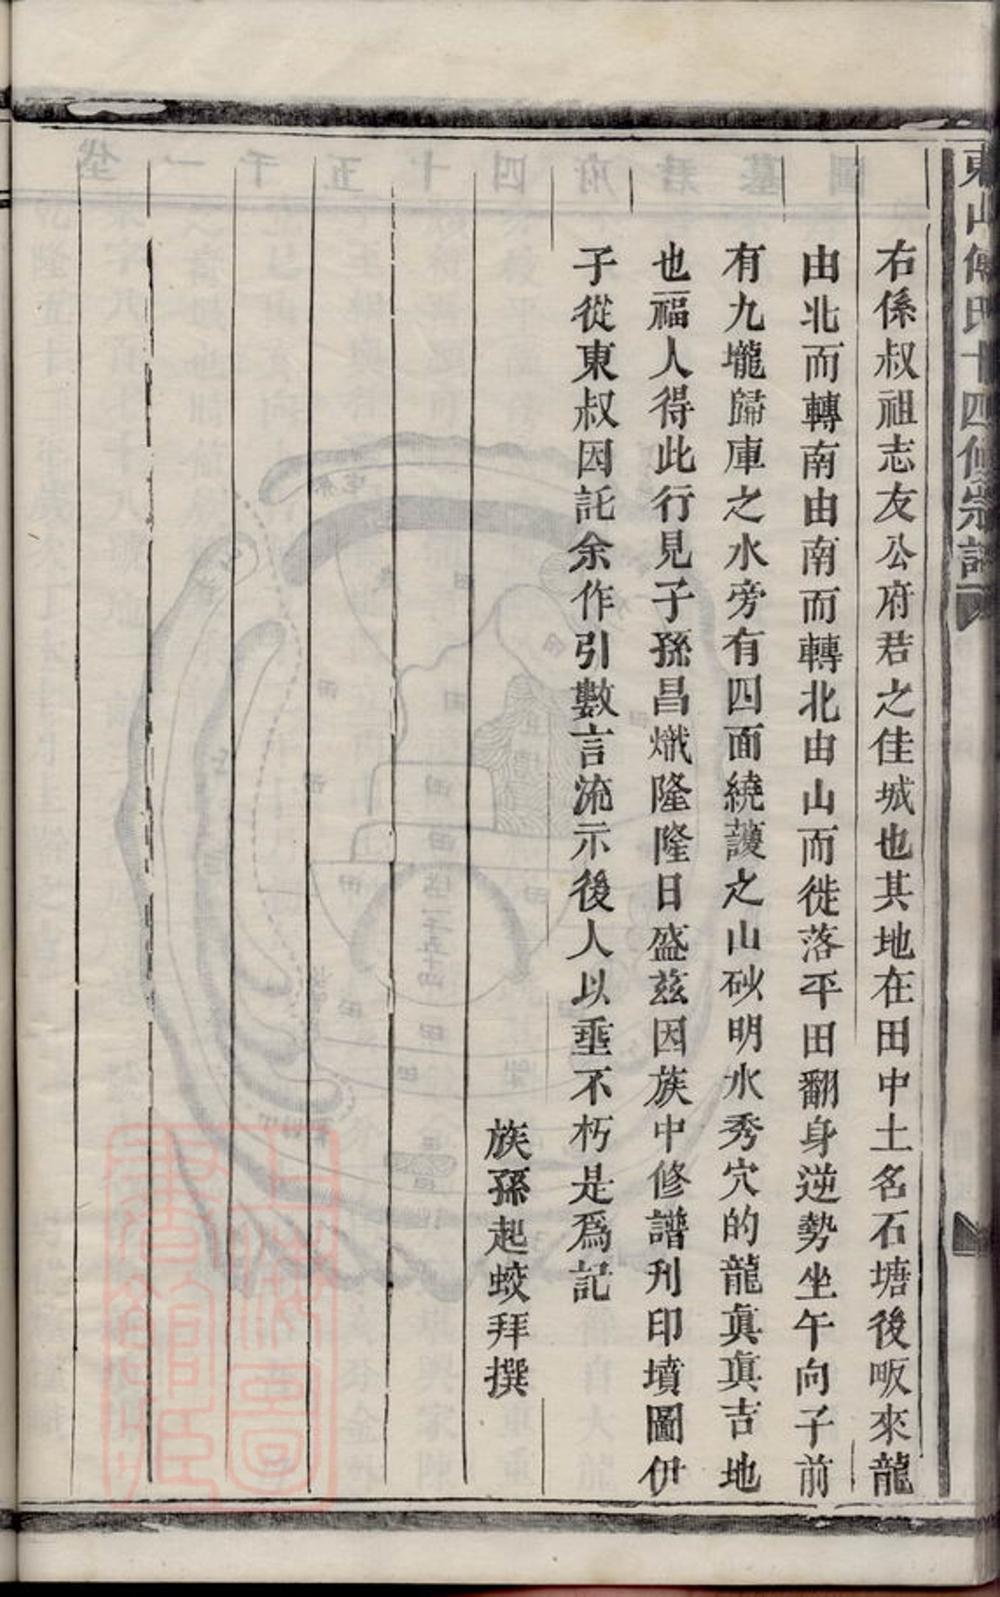 東山傅氏十四修宗譜
右係叔祖志友公府君之佳城也其地在田中土名石塘後畈來龍
由北而轉南由南而轉北由山而徙落平田翻身逆勢坐午向子前
有九壠歸庫之水旁有四面繞護之山砂明水秀穴的龍眞眞吉地
也福人得此行見子孫昌熾隆隆日盛兹因族中修譜刋印墳圖伊
子從東叔因託余作引數言流示後人以垂不朽是爲記
族孫起蛟拜撰
上海圖書館藏